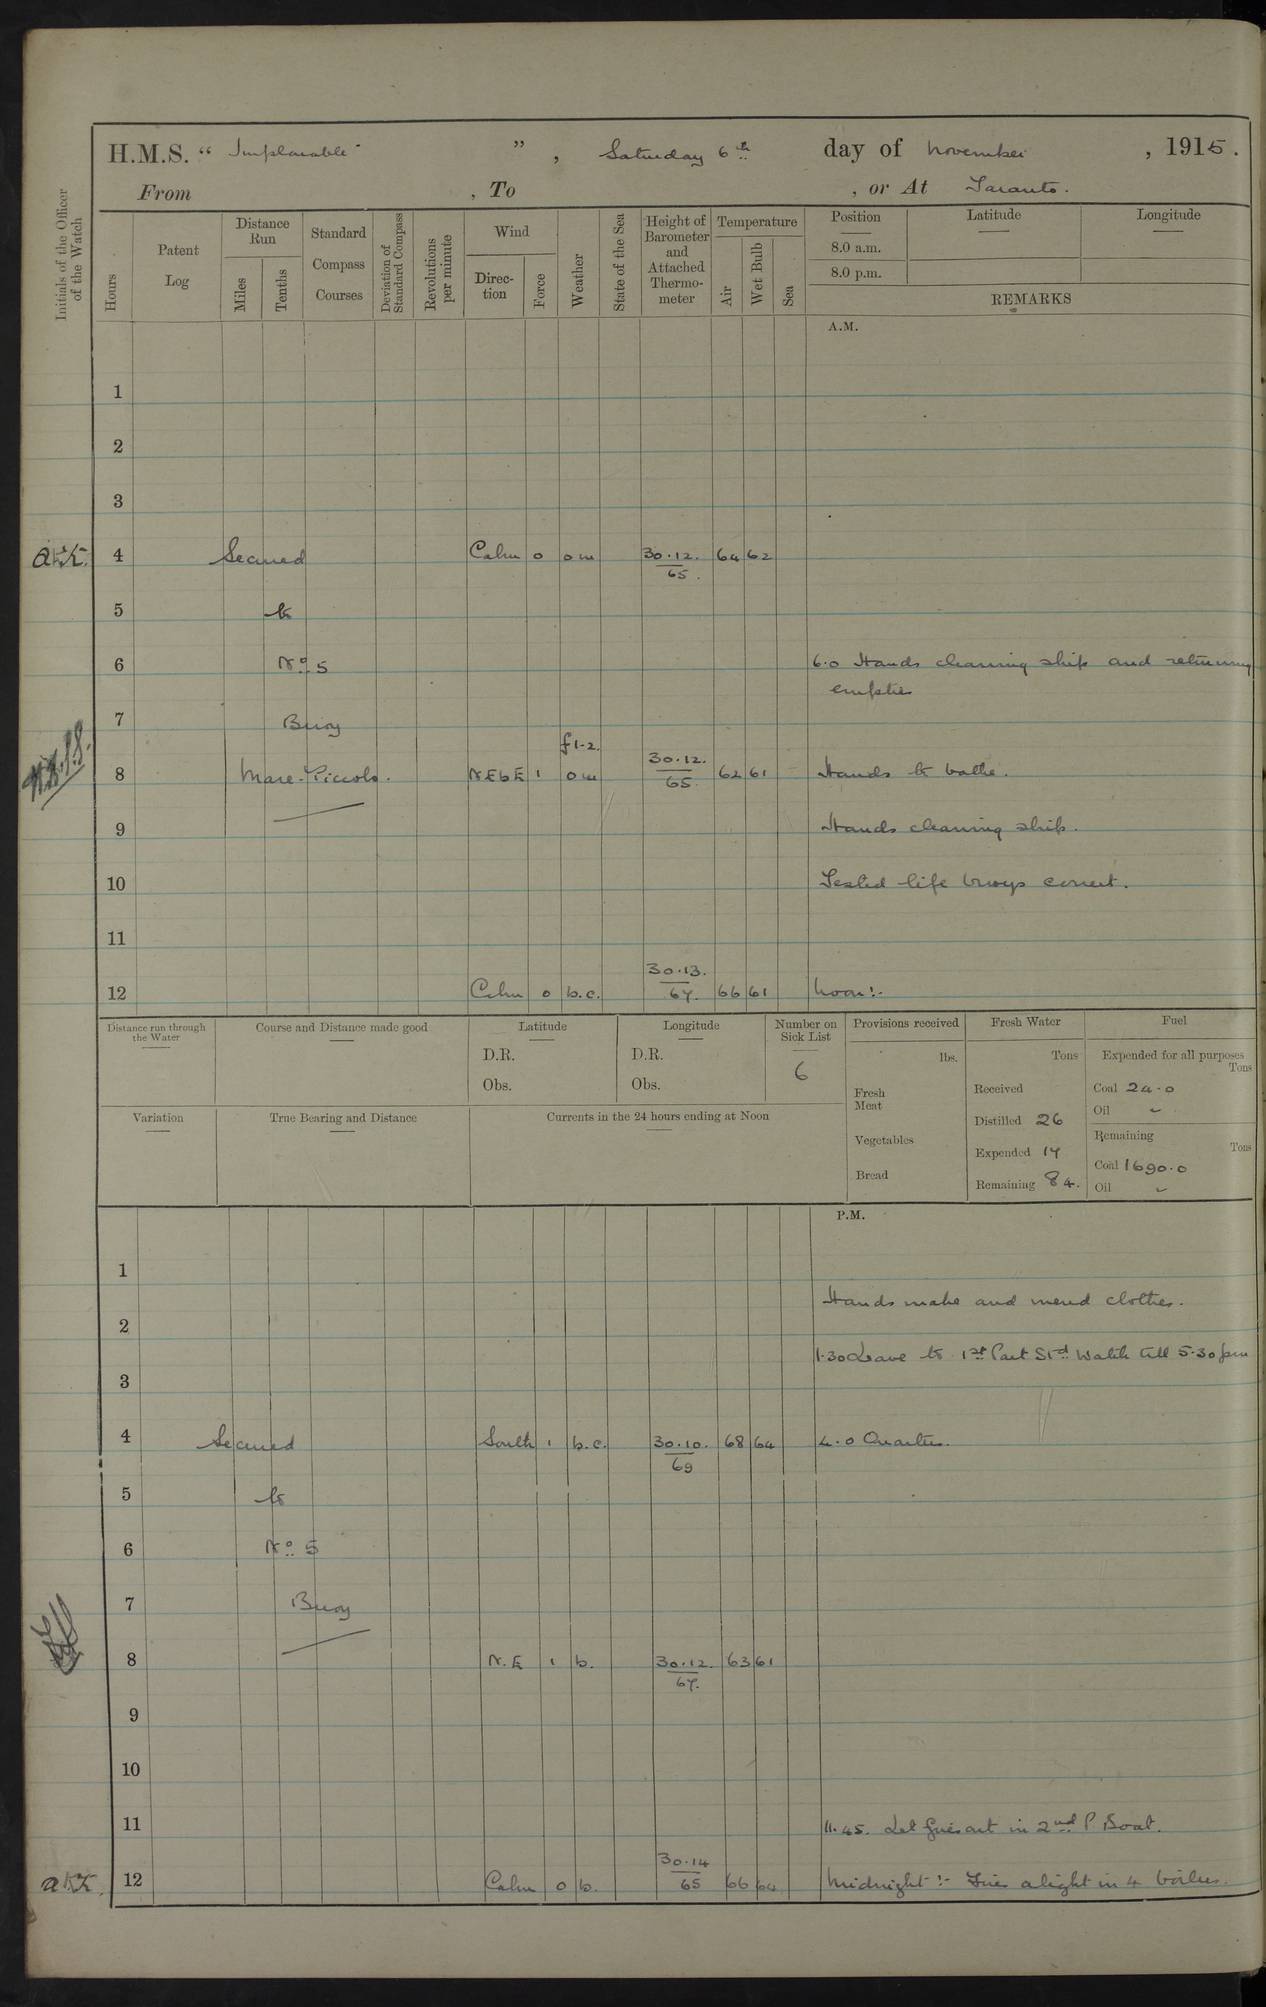 H.M.S. “ Implacable ” , Saturday 6th day of November , 1915.
From , To , or At Taranto.
Initials of the Officer of the Watch
Hours
Patent Log
Distance Run
Miles
Tenths
Standard Compass Courses
Deviation of Standard Compass
Revolutions per minute
Wind
Direction
Force
Weather
State of the Sea
Height of Barometer and Attached Thermometer
Temperature
Air
Wet Bulb
Sea
Position
8.0 a.m.
8.0 p.m.
Latitude
Longitude
REMARKS
A.M.
1
2
3
4 Secured Calm 0 o m 30.12. 64 62
65.
5 to
6 No 5 6.0 Hands cleaning ship and returning
empties
7 Buoy
f 1-2.
8 Mare Piccolo. NEbE 1 o m 30.12. 62 61 Hands to bathe.
65.
9 Hands cleaning ship.
10 Tested life buoys correct.
11
12 Calm 0 b.c. 30.13. 66 61 Noon:-
67.
Distance run through the Water
Course and Distance made good
Latitude
D.R.
Obs.
Longitude
D.R.
Obs.
Number on Sick List
6
Provisions received
lbs.
Fresh Meat
Vegetables
Bread
Fresh Water
Tons
Received
Distilled 26
Expended 17
Remaining 84.
Fuel
Expended for all purposes
Tons
Coal 24.0
Oil -
Remaining
Tons
Coal 1690.0
Oil -
Variation
True Bearing and Distance
Currents in the 24 hours ending at Noon
P.M.
1
Hands make and mend clothes.
2
1.30 Leave to 1st Part Std Watch till 5.30 pm
3
4 Secured South 1 b.c. 30.10. 68 64 4.0 Quarters.
69
5 to
6 No 5
7 Buoy
8 N.E 1 b. 30.12. 63 61
67.
9
10
11 11.45. Let fires out in 2nd P Boat.
12 Calm 0 b. 30.14 66 64 Midnight:- Fires alight in 4 boilers.
65